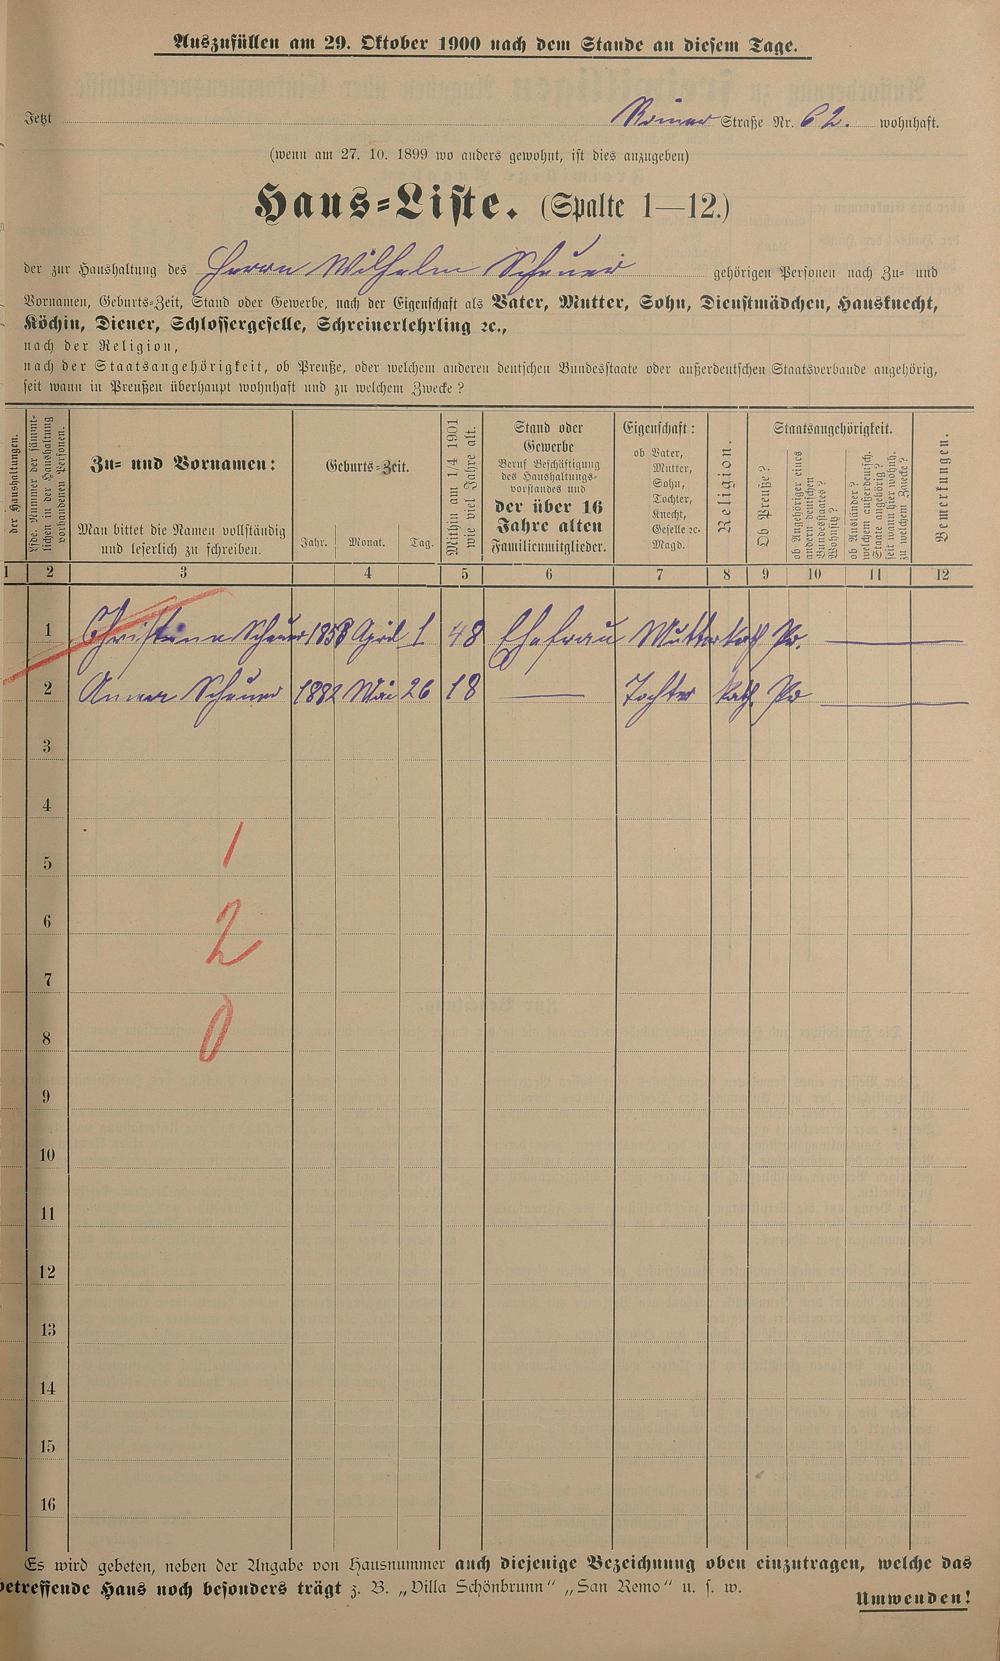 Auszufüllen am 29. Oktober 1900 nach dem Stande an diesem Tage.
Jetzt Römer Straße Nr. 62. wohnhaft.
(wenn am 27. 10. 1899 wo anders gewohnt, ist dies anzugeben)
Haus-Liste. (Spalte 1—12.)
der zur Haushaltung des Herrn Wilhelm Scheuer gehörigen Personen nach Zu- und
Vornamen, Geburts-Zeit, Stand oder Gewerbe, nach der Eigenschaft als Vater, Mutter, Sohn, Dienstmädchen, Hausknecht,
Köchin, Diener, Schlossergeselle, Schreinerlehrling ꝛc.,
nach der Religion,
nach der Staatsangehörigkeit, ob Preuße, oder welchem anderen deutschen Bundesstaate oder außerdeutschen Staatsverbande angehörig,
seit wann in Preußen überhaupt wohnhaft und zu welchem Zwecke?
der Haushaltungen.
Lfde. Nummer der sämmt-
lichen in der Haushaltung
vorhandenen Personen.
Zu- und Vornamen:
Man bittet die Namen vollständig
und leserlich zu schreiben.
Geburts-Zeit.
Jahr. Monat. Tag.
Mithin am 1/4 1901
wie viel Jahre alt.
Stand oder
Gewerbe
Beruf Beschäftigung
des Haushaltungs-
vorstandes und
der über 16
Jahre alten
Familienmitglieder.
Eigenschaft:
ob Vater,
Mutter,
Sohn,
Tochter,
Knecht,
Geselle ꝛc.
Magd.
Religion.
Staatsangehörigkeit.
Ob Preuße?
ob Angehöriger eines
andern deutschen
Bundesstaates?
Wohnsitz?
ob Ausländer?
welchem außerdeutsch.
Staate angehörig?
seit wann hier wohnh.
zu welchem Zwecke?
Bemerkungen.
1 2 3 4 5 6 7 8 9 10 11 12
1 Christina Scheuer 1853 April 1 48 Ehefrau Mutter kath Pr.
2 Anna Scheuer 1882 Mai 26 18 — Tochter kath. Pr
3
4
1
5
6
2
7
8
0
9
10
11
12
13
14
15
16
Es wird gebeten, neben der Angabe von Hausnummer auch diejenige Bezeichnung oben einzutragen, welche das
betreffende Haus noch besonders trägt z. B. „Villa Schönbrunn“ „San Remo“ u. s. w.
Umwenden!